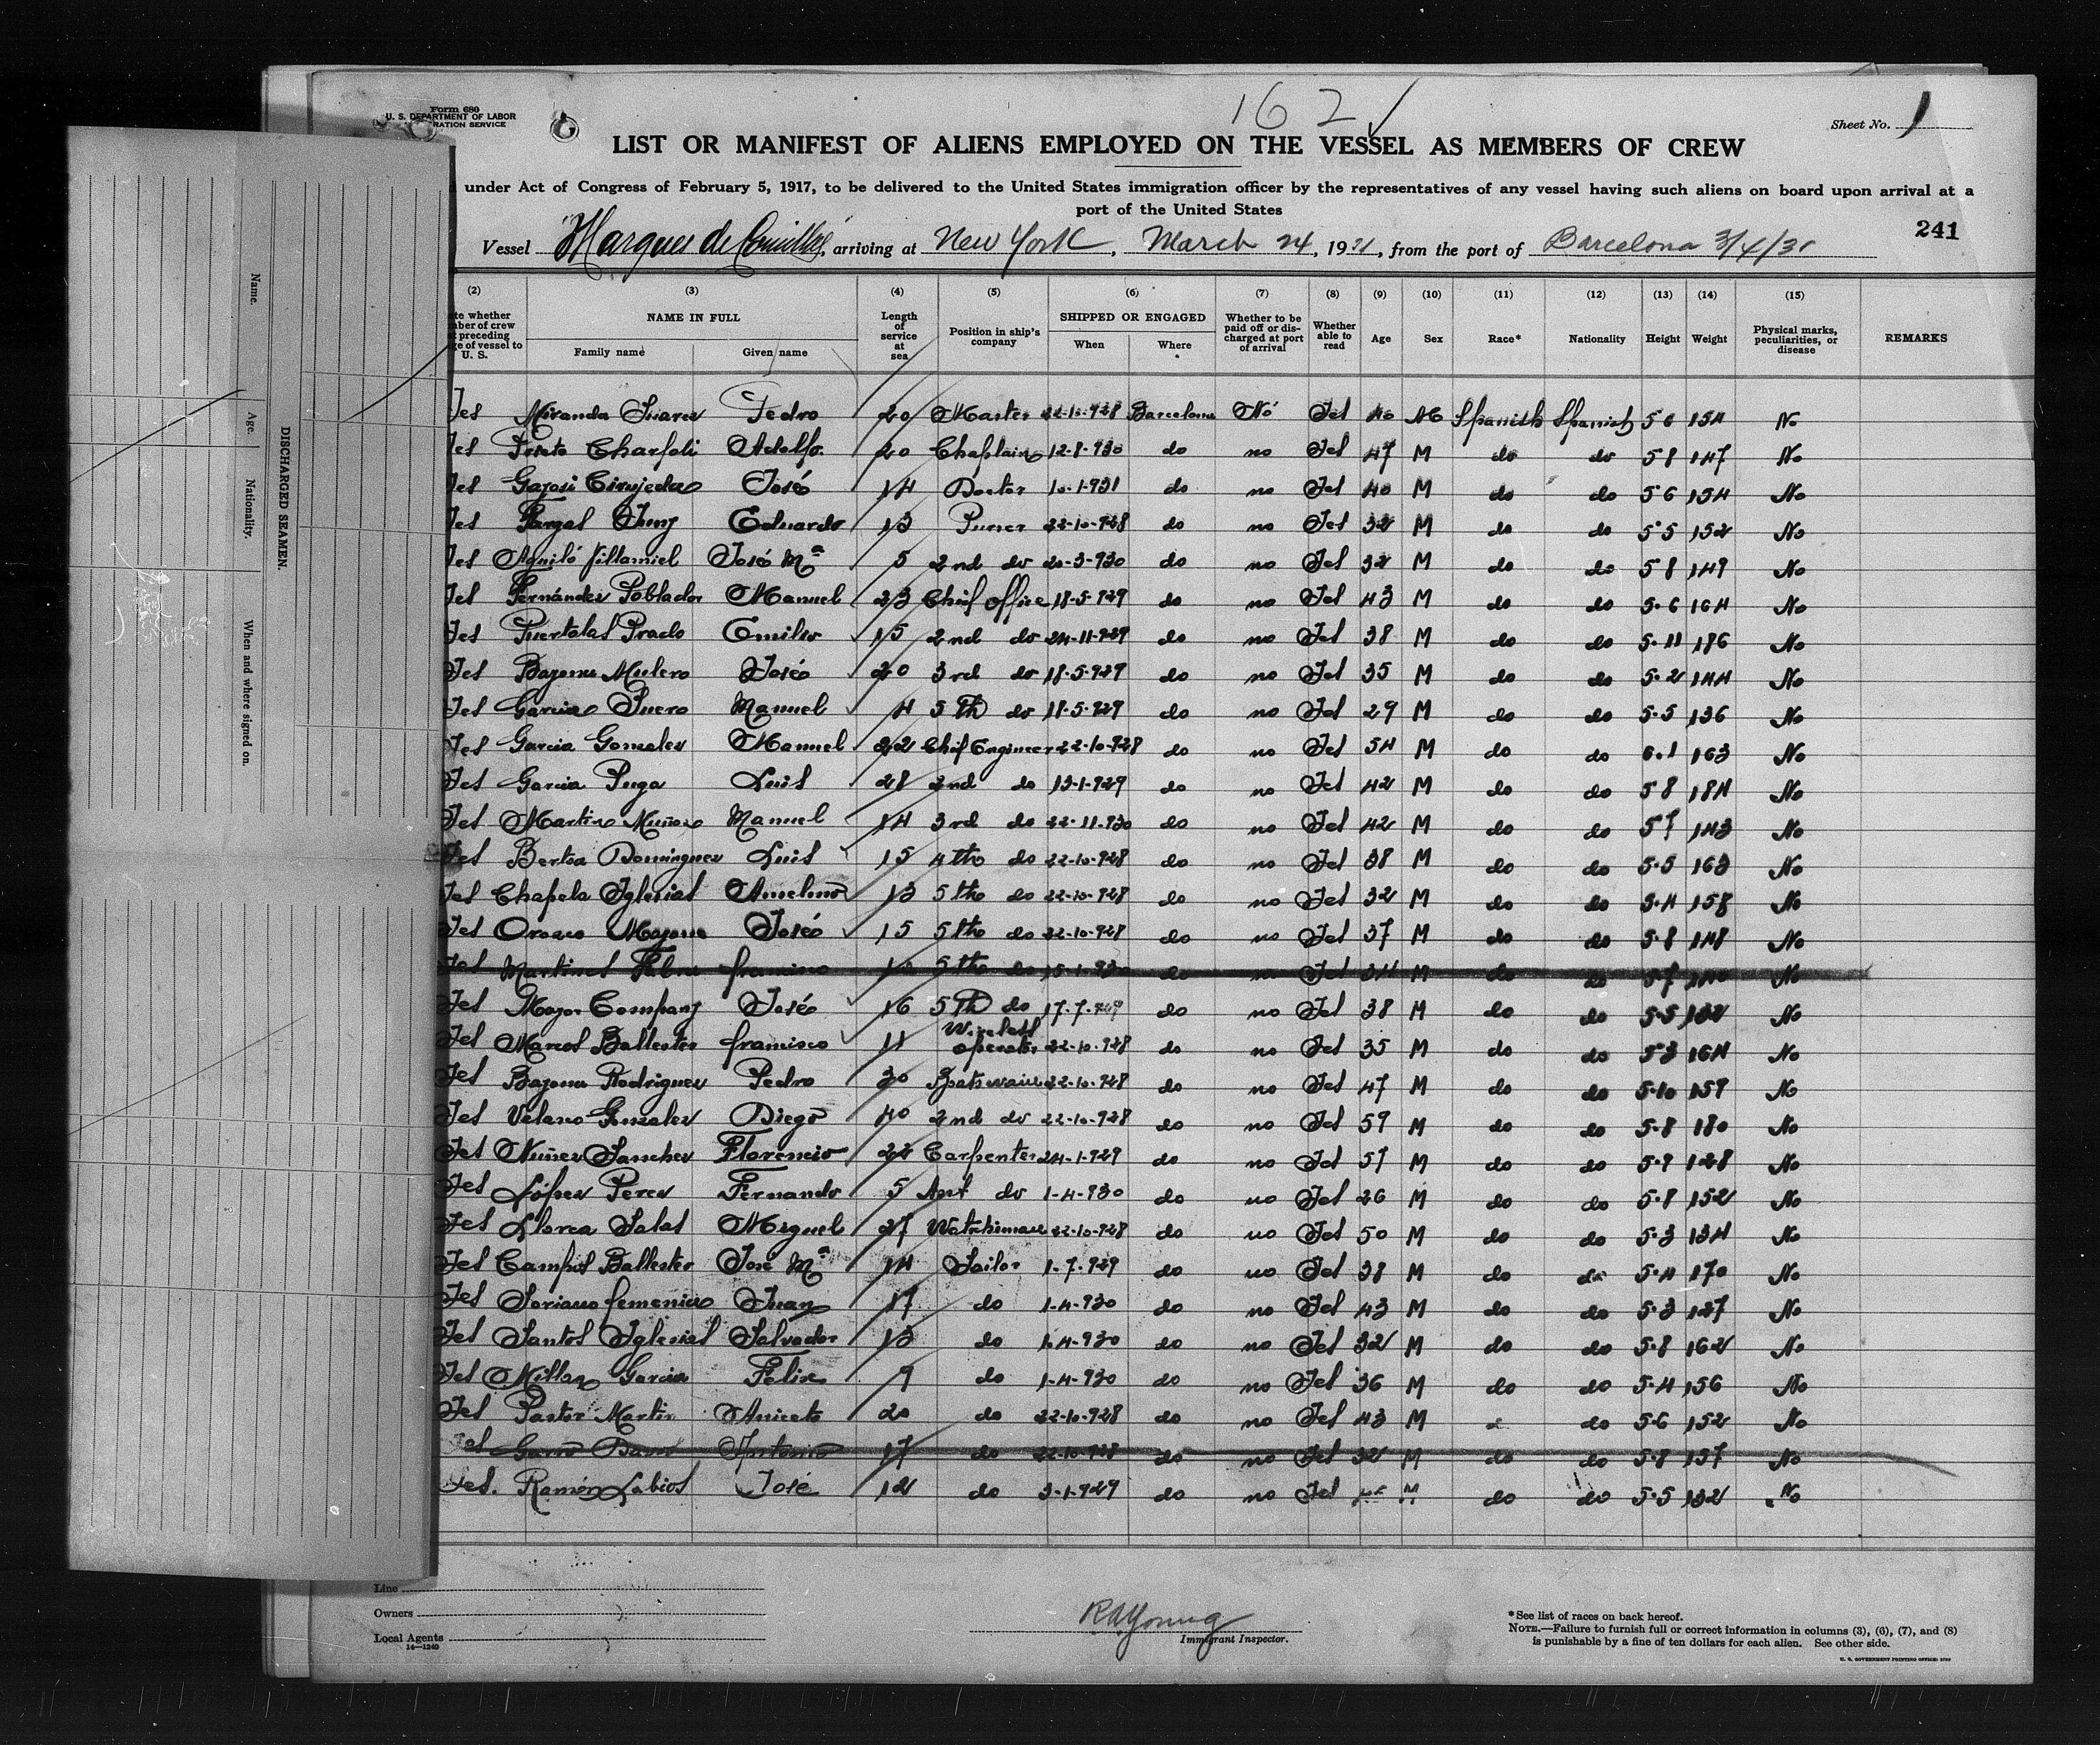 Form 680
U. S. DEPARTMENT OF LABOR
RATION SERVICE
162 ✓
Sheet No. 1
LIST OR MANIFEST OF ALIENS EMPLOYED ON THE VESSEL AS MEMBERS OF CREW
under Act of Congress of February 5, 1917, to be delivered to the United States immigration officer by the representatives of any vessel having such aliens on board upon arrival at a
port of the United States
241
Vessel Marques de Comillas, arriving at New York, March 24, 1931, from the port of Barcelona 3/4/31
(2) (3) (4) (5) (6) (7) (8) (9) (10) (11) (12) (13) (14) (15)
te whether
mber of crew
preceding
ge of vessel to
U. S.
NAME IN FULL
Family name Given name
Length of service at sea
Position in ship's company
SHIPPED OR ENGAGED
When Where
Whether to be paid off or discharged at port of arrival
Whether able to read
Age Sex Race* Nationality Height Weight
Physical marks, peculiarities, or disease
REMARKS
Yes Miranda Suarez Pedro 20 Master 22-10-928 Barcelona No Yes 40 M Spanish Spanish 5 6 154 No
Yes Prieto Adolfo 20 Chaplain 12-8-930 do no Yes 47 M do do 5 8 147 No
Yes Cirujeda José 14 Doctor 10-1-931 do no Yes 40 M do do 5 6 154 No
Yes Eduardo 13 Purser 22-10-928 do no Yes 32 M do do 5 5 152 No
Yes Aguiló Villamiel José Mª 5 2nd do 20-3-930 do no Yes 32 M do do 5 8 149 No
Yes Fernández Poblador Manuel 23 Chief Office 18-5-929 do no Yes 43 M do do 5-6 164 No
Yes Puertolas Prado Emilio 15 2nd do 24-11-929 do no Yes 38 M do do 5-11 186 No
Yes Bayona Mulero José 20 3rd do 18-5-929 do no Yes 35 M do do 5-2 144 No
Yes Garcia Suero Manuel 4 5th do 18-5-929 do no Yes 29 M do do 5-5 136 No
Yes Garcia Gonzalez Manuel 22 Chief Engineer 22-10-928 do no Yes 54 M do do 6-1 163 No
Yes Garcia Puga Luis 28 2nd do 13-1-929 do no Yes 42 M do do 5 8 184 No
Yes Martin Muñoz Manuel 14 3rd do 22-11-930 do no Yes 42 M do do 5 7 143 No
Yes Bertoa Dominguez Luis 15 4th do 22-10-928 do no Yes 38 M do do 5-5 163 No
Yes Chapela Iglesias Anselmo 13 5th do 22-10-928 do no Yes 32 M do do 5-4 158 No
Yes Orozco José 15 5th do 22-10-928 do no Yes 37 M do do 5-8 148 No
Yes Martinez Fabra francisco 10 5th do 15-1-930 do no Yes 34 M do do 5-7 140 No
Yes Mayor Company José 16 5th do 17-7-929 do no Yes 38 M do do 5-5 132 No
Yes Marcos Ballester francisco 11 Wireless operator 22-10-928 do no Yes 35 M do do 5 3 164 No
Yes Bayona Rodriguez Pedro 30 Boatswain 22-10-928 do no Yes 47 M do do 5-10 159 No
Yes Velasco Gonzalez Diego 40 2nd do 22-10-928 do no Yes 59 M do do 5-8 180 No
Yes Nuñez Sanchez Florencio 22 Carpenter 24-1-929 do no Yes 57 M do do 5-9 128 No
Yes López Perez Fernando 5 Asst do 1-4-930 do no Yes 26 M do do 5-8 152 No
Yes Llorca Salas Miguel 27 Watchman 22-10-928 do no Yes 50 M do do 5-3 134 No
Yes Campos Ballester José Mª 14 Sailor 1-7-929 do no Yes 38 M do do 5-4 170 No
Yes Soriano femenia Juan 17 do 1-4-930 do no Yes 43 M do do 5-3 127 No
Yes Santos Iglesias Salvador 13 do 1-4-930 do no Yes 32 M do do 5-8 162 No
Yes Millan Garcia Felix 9 do 1-4-930 do no Yes 36 M do do 5-4 156 No
Yes Pastor Martin Aniceto 20 do 22-10-928 do no Yes 43 M do 5-6 152 No
Yes Antonio 17 do 22-10-928 do no Yes 32 M do do 5-8 157 No
Yes. Ramón Labios José 12 do 3-1-929 do no Yes M do do 5-5 132 No
DISCHARGED SEAMEN.
Name. Age. Nationality. When and where signed on.
Line
Owners
Local Agents
14—1240
RAYoung
Immigrant Inspector.
*See list of races on back hereof.
NOTE.—Failure to furnish full or correct information in columns (3), (6), (7), and (8)
is punishable by a fine of ten dollars for each alien. See other side.
U. S. GOVERNMENT PRINTING OFFICE